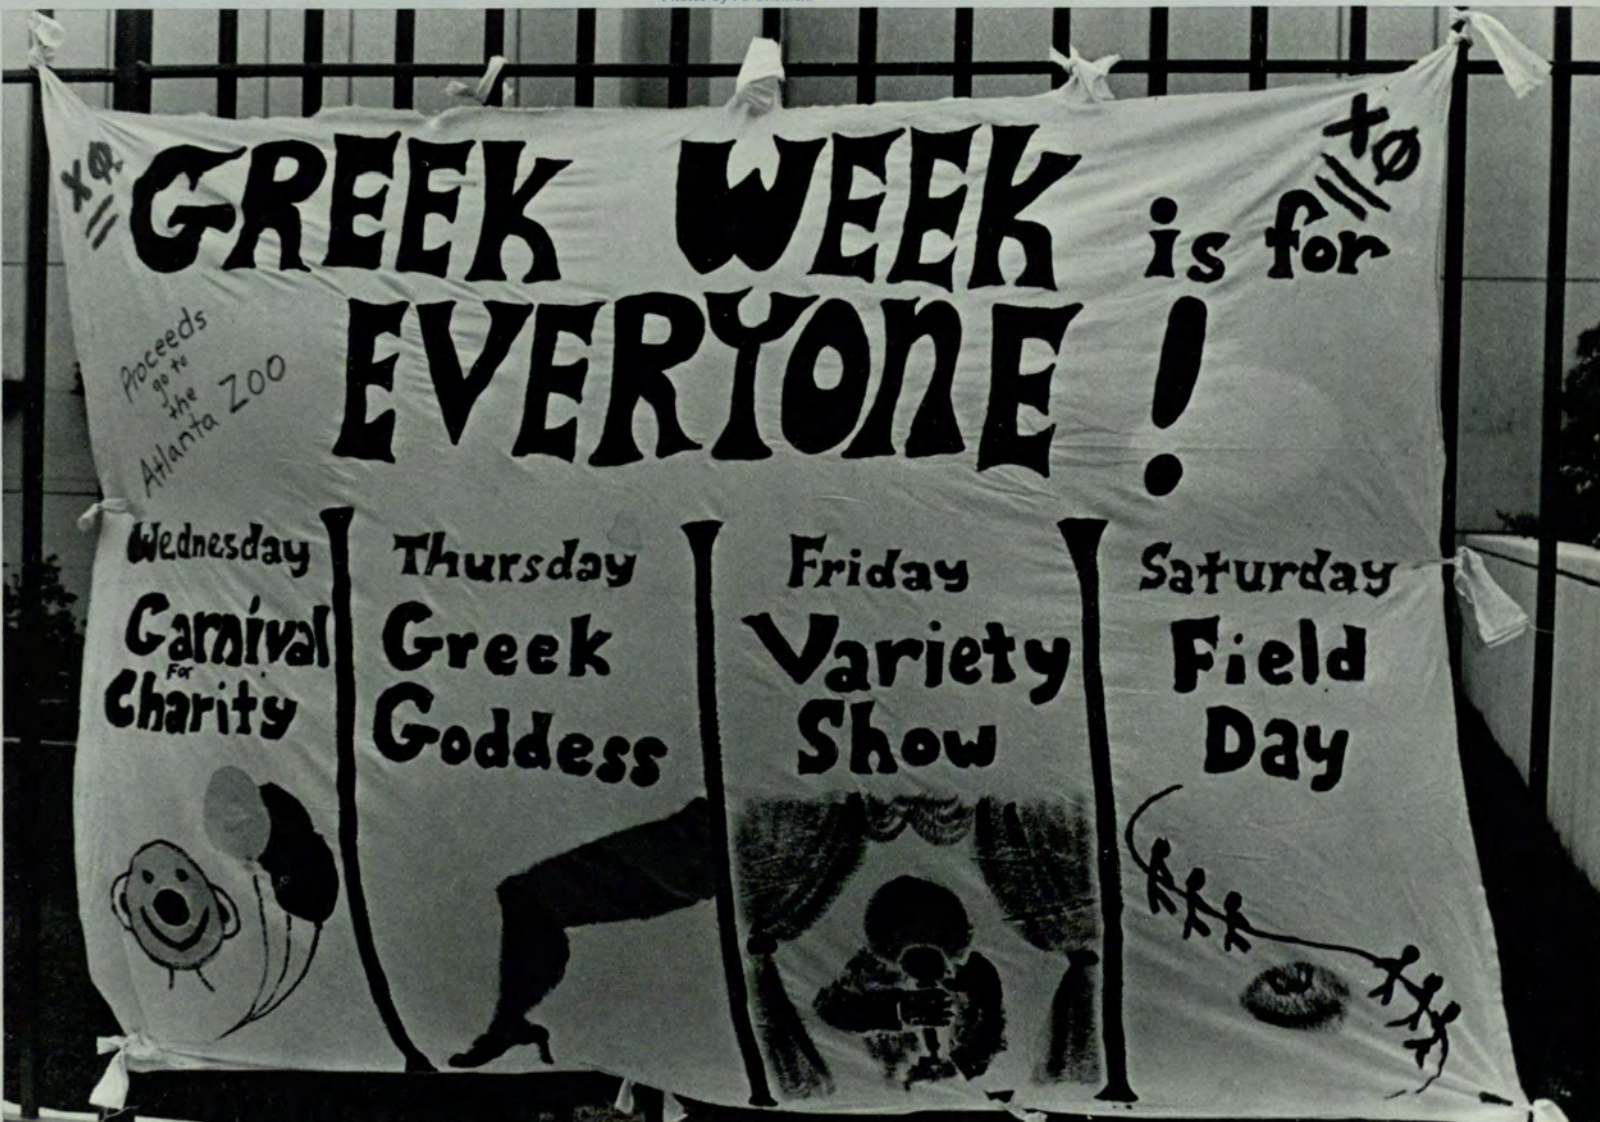 ΧΦ
GREEK WEEK is for
ΧΦ
EVERYONE!
Proceeds
go to
the
Atlanta Zoo
Wednesday
Carnival
For
Charity
Thursday
Greek
Goddess
Friday
Variety
Show
Saturday
Field
Day